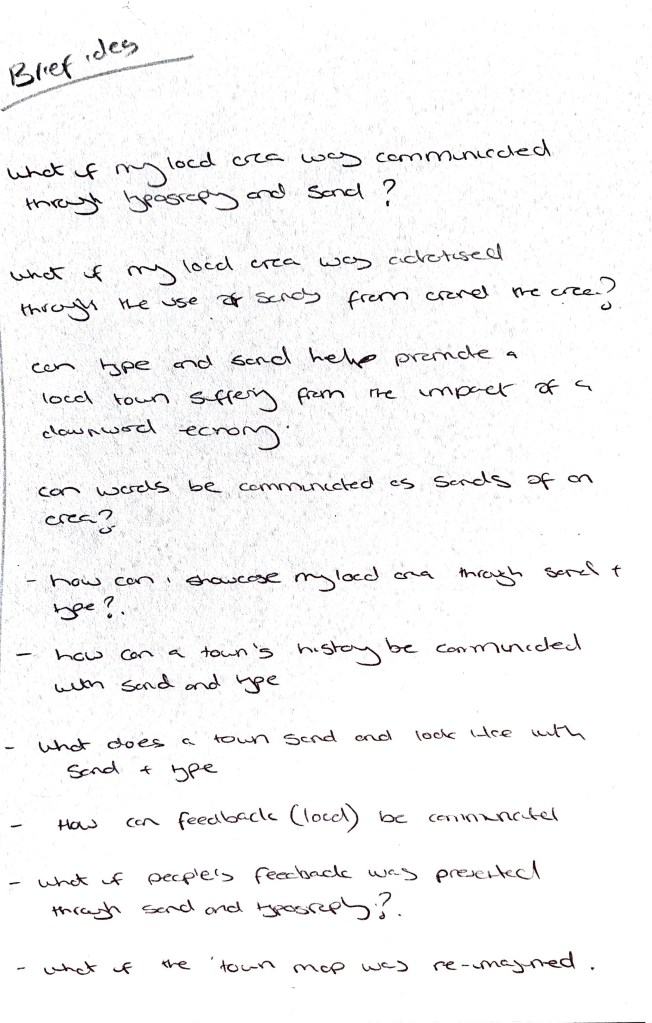 Brief ideas
what if my local area was communicated
through typography and sound?
what if my local area was advertised
through the use of sounds from around the area?
can type and sound help promote a
local town suffering from the impact of a
downward economy.
can words be communicated as sounds of an
area?
- how can i showcase my local area through sound +
type?.
- how can a town's history be communicated
with sound and type
- what does a town sound and look like with
sound + type
- How can feedback (local) be communicated
- what if people's feedback was presented
through sound and typography?.
- what if the town map was re-imagined.